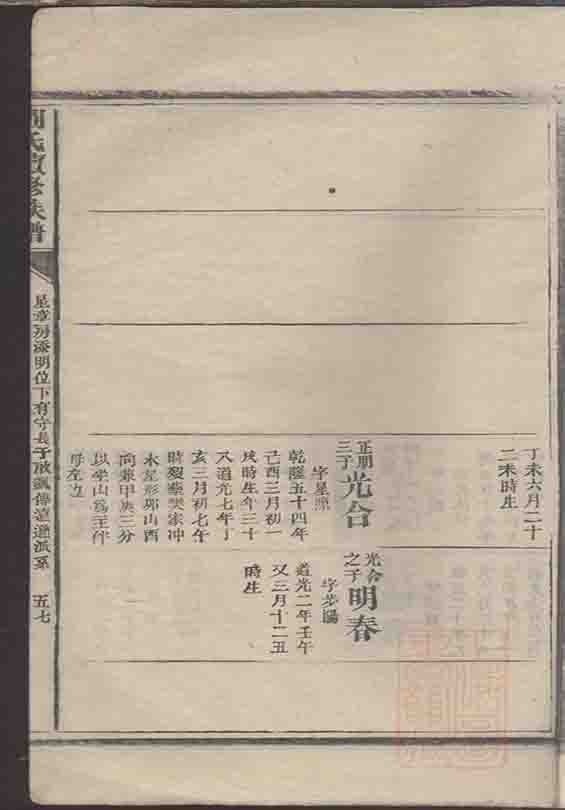 丁未六月二十
二未時生
正明
三子
光合
字星照
乾隆五十四年
己酉三月初一
戌時生年三十
八道光七年丁
亥三月初七午
時歿葬樊家冲
木星形卯山酉
向兼甲庚三分
以坐山為主伴
母左边
光合
之子
明春
字步陽
道光二年壬午
又三月十二丑
時生
氏敦修族譜
星章房添明位下有守長子啟
傳遠通派系
五七